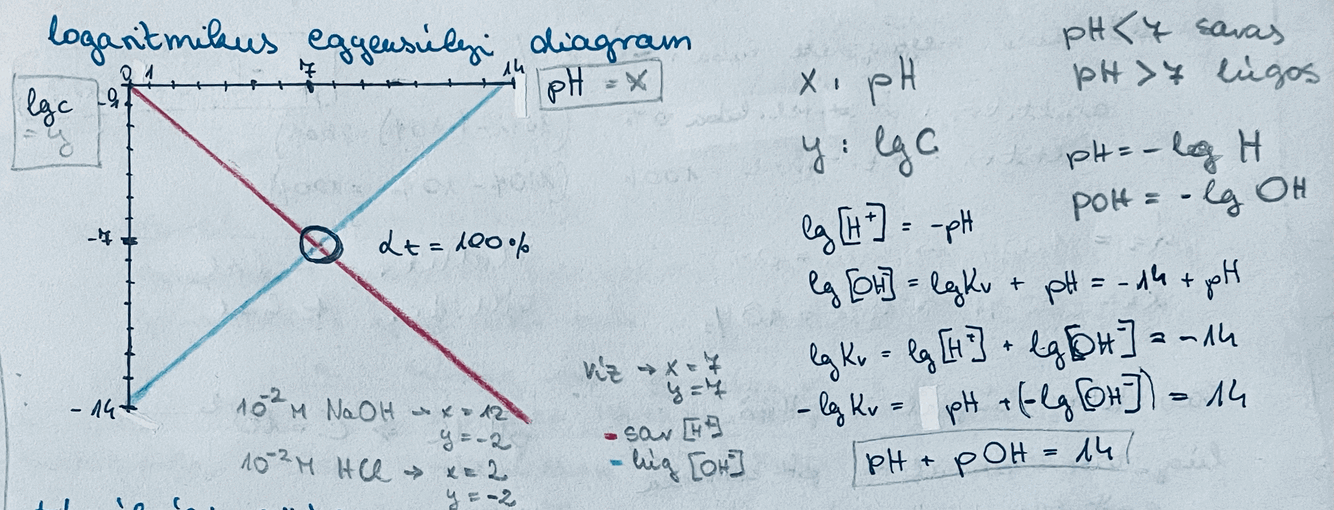 logaritmikus eggensúlyi diagram
0 1 7 14
pH = x
lgc
= y
-1
-7
-14
αt = 100%
10⁻² M NaOH → x = 12
y = -2
10⁻² M HCl → x = 2
y = -2
víz → x = 7
y = 7
- sav [H⁺]
- lúg [OH⁻]
x : pH
y : lgC
pH < 7 savas
pH > 7 lúgos
pH = - log H
pOH = - lg OH
lg [H⁺] = -pH
lg [OH⁻] = lgKv + pH = -14 + pH
lgKv = lg [H⁺] + lg [OH⁻] = -14
- lgKv = pH + (-lg [OH⁻]) = 14
pH + pOH = 14